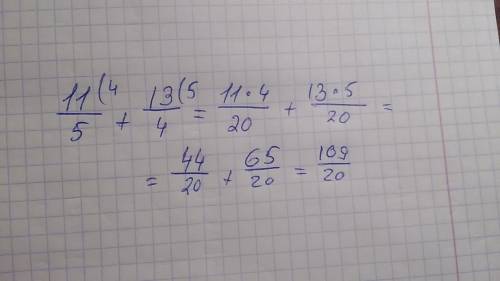 11(4/5 + 13(5/4 = 11·4/20 + 13·5/20 =
= 44/20 + 65/20 = 109/20